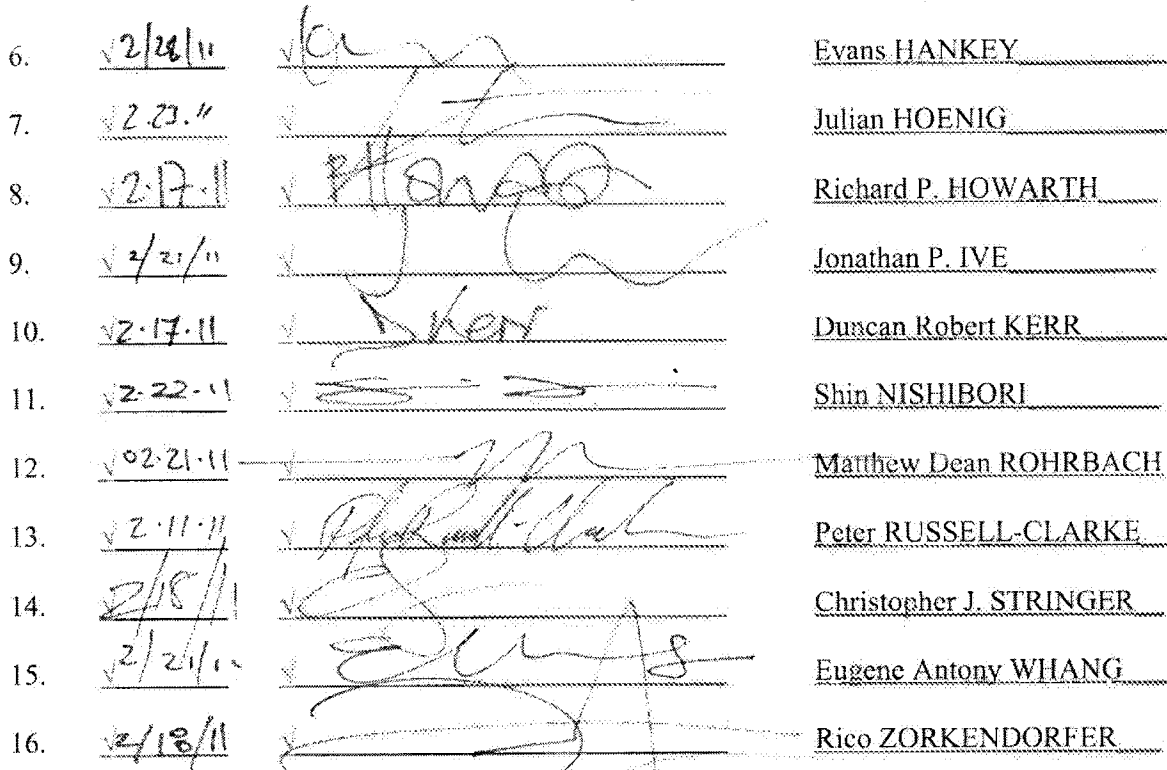 6. √2/28/11 √ Evans HANKEY
7. √2.23.11 √ Julian HOENIG
8. √2.17.11 √ Richard P. HOWARTH
9. √2/21/11 √ Jonathan P. IVE
10. √2.17.11 √ DKerr Duncan Robert KERR
11. √2.22.11 √ Shin NISHIBORI
12. √02.21.11 √ Matthew Dean ROHRBACH
13. √2.11.11 √ Peter RUSSELL-CLARKE
14. 2/18/11 √ Christopher J. STRINGER
15. √2/21/11 √ Eugene Antony WHANG
16. √2/18/11 √ Rico ZORKENDORFER